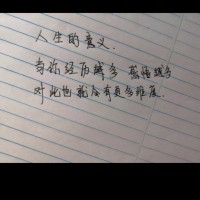 人生的意义.
当你经历越多 感悟越多
对此也就会有更多维度.